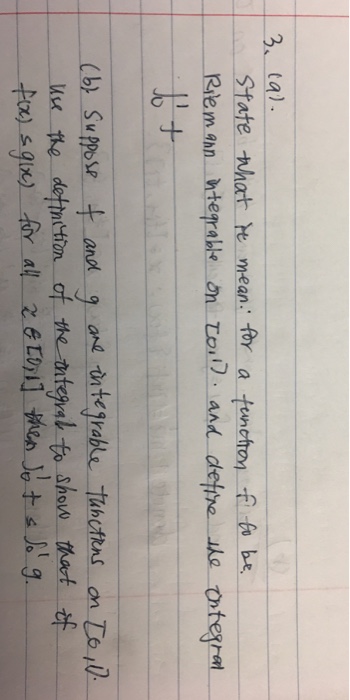 3. (a).
State what we mean: for a function f to be
Riemann integrable on [0,1]. and define the integral
∫₀¹ f
(b) Suppose f and g are integrable functions on [0,1].
Use the definition of the integral to show that if
f(x) ≤ g(x) for all x ∈ [0,1] then ∫₀¹ f ≤ ∫₀¹ g.